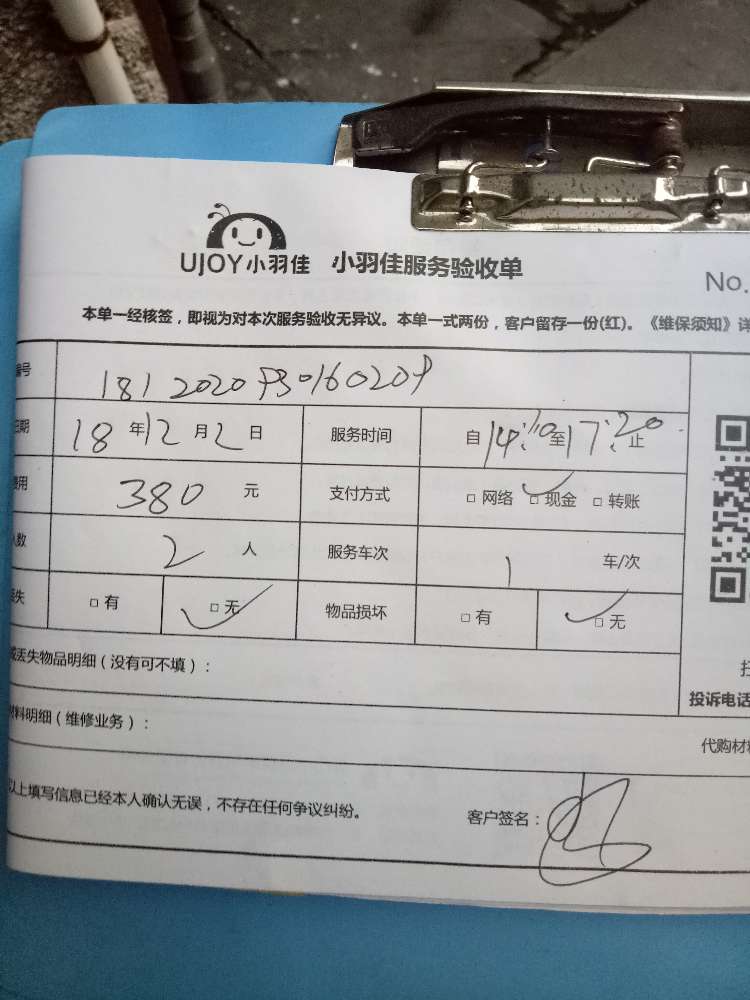 UJOY小羽佳 小羽佳服务验收单
No.
本单一经核签，即视为对本次服务验收无异议。本单一式两份，客户留存一份(红)。《维保须知》详
编号
日期 18 年 12 月 2 日 服务时间 自 14:10 至 17:20 止
费用 380 元 支付方式 □ 网络 □ 现金 □ 转账
人数 2 人 服务车次 1 车/次
丢失 □ 有 □ 无 物品损坏 □ 有 □ 无
或丢失物品明细（没有可不填）：
投诉电话
材料明细（维修业务）：
代购材料
以上填写信息已经本人确认无误，不存在任何争议纠纷。 客户签名：